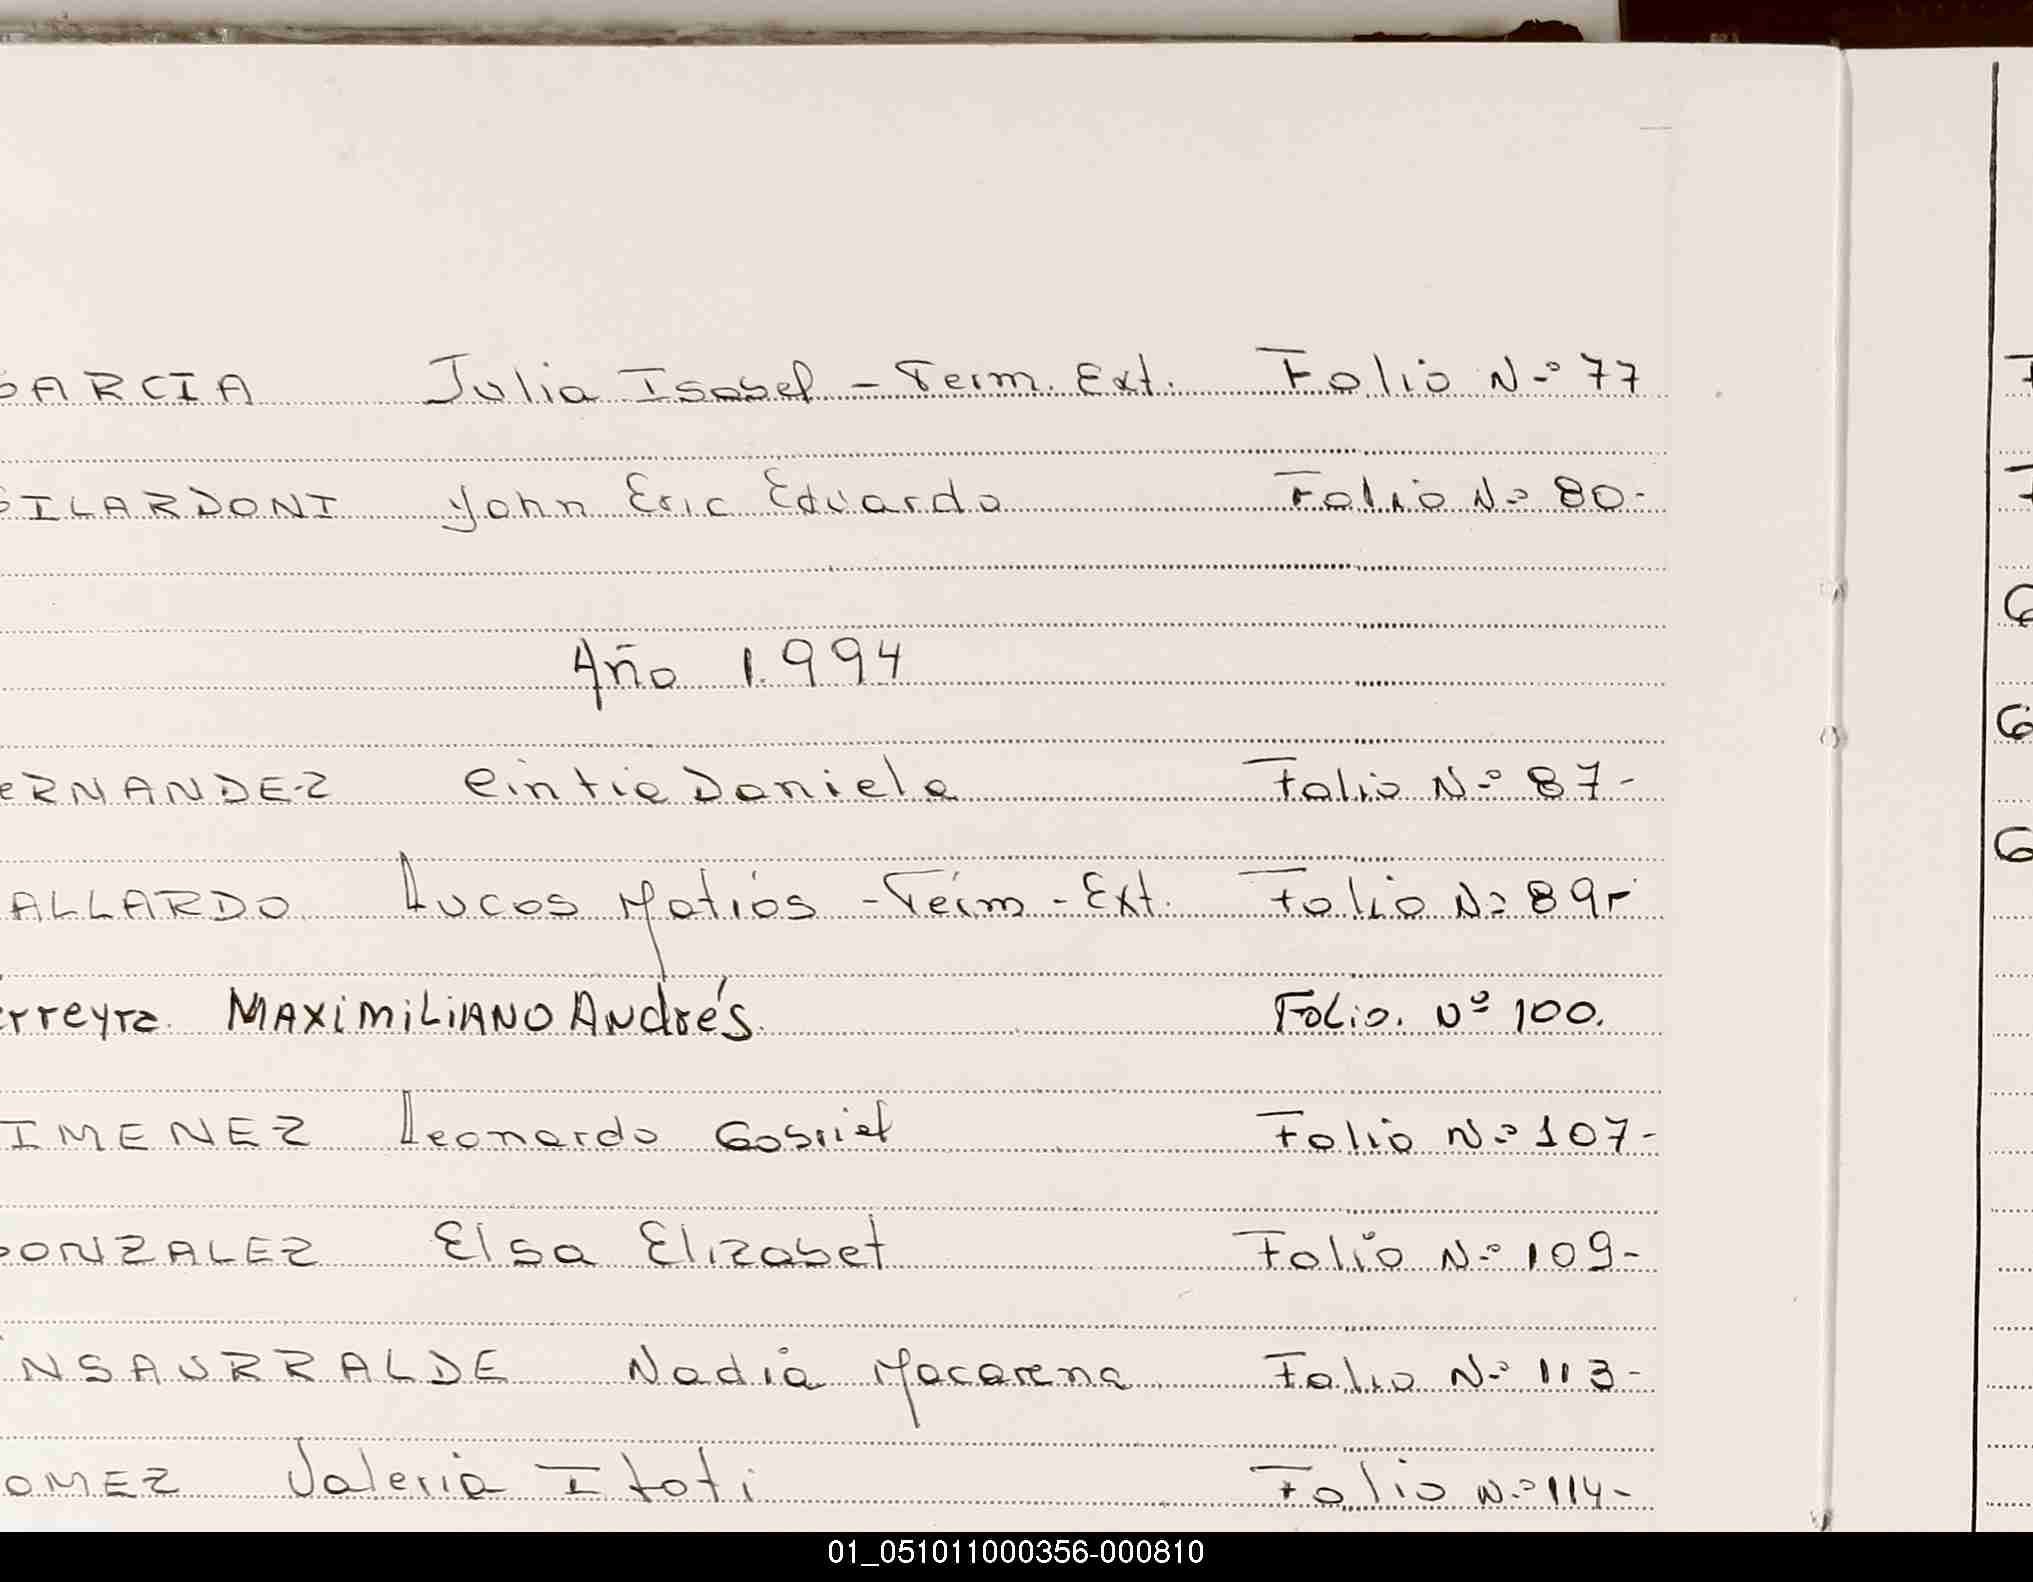 GARCIA Julia Isabel - Term. Ext. Folio Nº 77
GILARDONI John Eric Eduardo Folio Nº 80-
Año 1.994
ERNANDEZ Cintia Daniela Folio Nº 87-
ALLARDO Lucas Matías - Térm - Ext. Folio Nº 89-
erreyra MAXiMiLiANO ANdrés. FoLio. Nº 100.
IMENEZ Leonardo Gabriel Folio Nº 107-
GONZALEZ Elsa Elizabet Folio Nº 109-
INSAURRALDE Nadia Macarena Folio Nº 113-
OMEZ Valeria Itati Folio Nº 114-
01_051011000356-000810